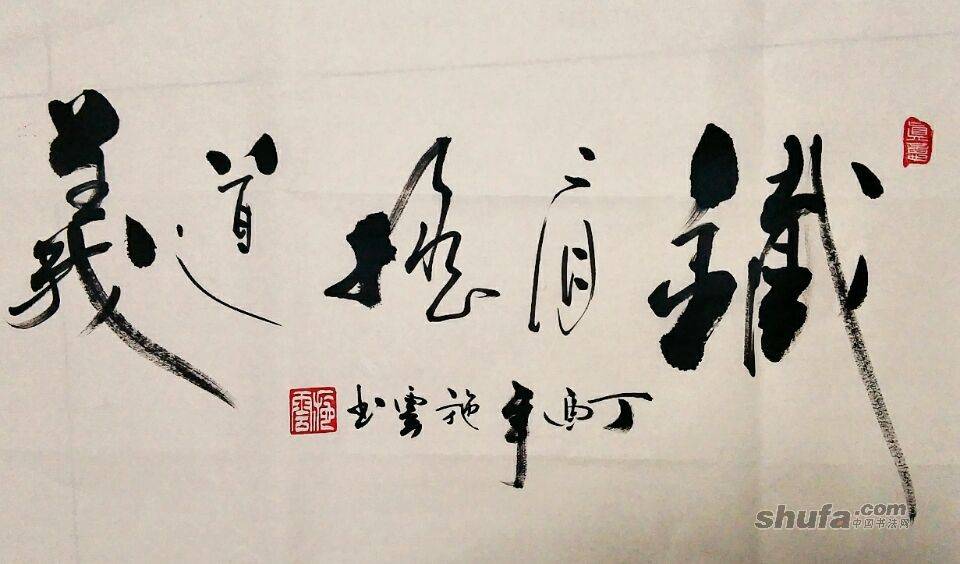 鐵肩擔道義
丁酉年施雲书
施雲
shufa.com
中国书法网